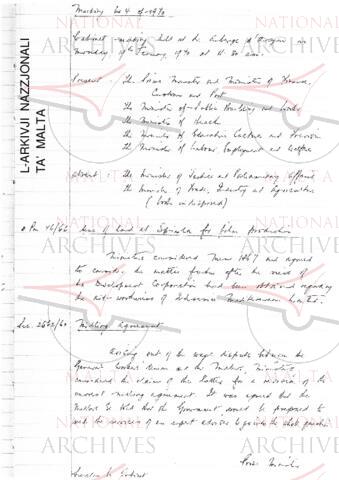 Meeting No 4 of 1970
Cabinet meeting held at the Auberge d'Aragon on
Monday, 19th January, 1970 at 11.30 am.
Present : The Prime Minister and Minister of Finance,
Customs and Port
The Minister of Public Building and Works
The Minister of Health
The Minister of Education Culture and Tourism
The Minister of Labour Employment and Welfare
Absent : The Minister of Justice and Parliamentary Affairs
The Minister of Trade, Industry and Agriculture
(both indisposed)
Use of land at for film production
Ministers considered Memo 1867 and agreed
to consider the matter further after the views of
the Development Corporation had been obtained regarding
the Mediterranean Limited.
Milling Agreement
Arising out of the wage dispute between the
General Workers Union and the Millers, Ministers
considered the claim of the latter for a revision of the
current milling agreement. It was agreed that the
Millers be told that the Government would be prepared to
the services of an expert adviser to the whole
Prime Minister
Secretary to Cabinet
L-ARKIVJI NAZZJONALI
TA' MALTA
NATIONAL
ARCHIVES
MALTA